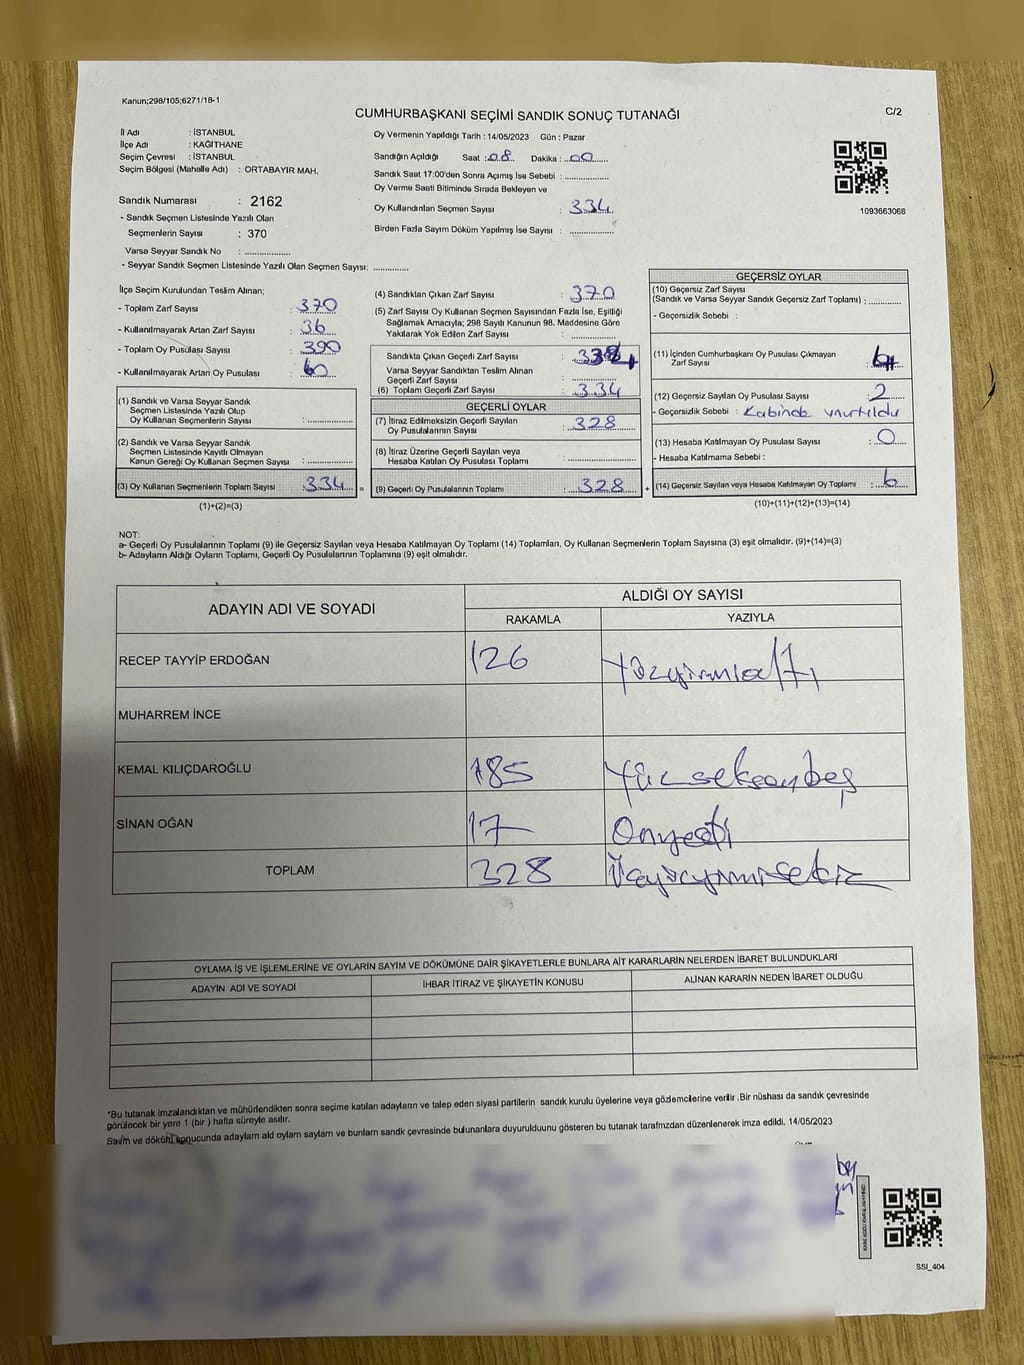 Kanun;298/105;6271/18-1
CUMHURBAŞKANI SEÇİMİ SANDIK SONUÇ TUTANAĞI
C/2
İl Adı : İSTANBUL
İlçe Adı : KAĞITHANE
Seçim Çevresi : İSTANBUL
Seçim Bölgesi (Mahalle Adı) : ORTABAYIR MAH.
Sandık Numarası : 2162
- Sandık Seçmen Listesinde Yazılı Olan
Seçmenlerin Sayısı : 370
Varsa Seyyar Sandık No : ................
- Seyyar Sandık Seçmen Listesinde Yazılı Olan Seçmen Sayısı: ............
Oy Vermenin Yapıldığı Tarih : 14/05/2023 Gün : Pazar
Sandığın Açıldığı Saat : 08 Dakika : 00
Sandık Saat 17:00'den Sonra Açımış İse Sebebi : ................
Oy Verme Saati Bitiminde Sırada Bekleyen ve
Oy Kullandırılan Seçmen Sayısı : 334
Birden Fazla Sayım Döküm Yapılmış İse Sayısı : ................
1093663066
İlçe Seçim Kurulundan Teslim Alınan;
- Toplam Zarf Sayısı : 370
- Kullanılmayarak Artan Zarf Sayısı : 36
- Toplam Oy Pusulası Sayısı : 390
- Kullanılmayarak Artan Oy Pusulası : 60
(1) Sandık ve Varsa Seyyar Sandık
Seçmen Listesinde Yazılı Olup
Oy Kullanan Seçmenlerin Sayısı : ................
(2) Sandık ve Varsa Seyyar Sandık
Seçmen Listesinde Kayıtlı Olmayan
Kanun Gereği Oy Kullanan Seçmen Sayısı : ................
(3) Oy Kullanan Seçmenlerin Toplam Sayısı : 334 =
(1)+(2)=(3)
(4) Sandıktan Çıkan Zarf Sayısı : 370
(5) Zarf Sayısı Oy Kullanan Seçmen Sayısından Fazla İse, Eşitliği
Sağlamak Amacıyla; 298 Sayılı Kanunun 98. Maddesine Göre
Yakılarak Yok Edilen Zarf Sayısı : ................
Sandıkta Çıkan Geçerli Zarf Sayısı : 334
Varsa Seyyar Sandıktan Teslim Alınan
Geçerli Zarf Sayısı : ................
(6) Toplam Geçerli Zarf Sayısı : 334
GEÇERLİ OYLAR
(7) İtiraz Edilmeksizin Geçerli Sayılan
Oy Pusulalarının Sayısı : 328
(8) İtiraz Üzerine Geçerli Sayılan veya
Hesaba Katılan Oy Pusulası Toplamı : ................
(9) Geçerli Oy Pusulalarının Toplamı : 328 +
GEÇERSİZ OYLAR
(10) Geçersiz Zarf Sayısı
(Sandık ve Varsa Seyyar Sandık Geçersiz Zarf Toplamı) : ............
- Geçersizlik Sebebi :
(11) İçinden Cumhurbaşkanı Oy Pusulası Çıkmayan
Zarf Sayısı : 4
(12) Geçersiz Sayılan Oy Pusulası Sayısı : 2
- Geçersizlik Sebebi : Kabinde unutuldu
(13) Hesaba Katılmayan Oy Pusulası Sayısı : 0
- Hesaba Katılmama Sebebi :
(14) Geçersiz Sayılan veya Hesaba Katılmayan Oy Toplamı : 6
(10)+(11)+(12)+(13)=(14)
NOT:
a- Geçerli Oy Pusulalarının Toplamı (9) ile Geçersiz Sayılan veya Hesaba Katılmayan Oy Toplamı (14) Toplamları, Oy Kullanan Seçmenlerin Toplam Sayısına (3) eşit olmalıdır. (9)+(14)=(3)
b- Adayların Aldığı Oyların Toplamı, Geçerli Oy Pusulalarının Toplamına (9) eşit olmalıdır.
ADAYIN ADI VE SOYADI
ALDIĞI OY SAYISI
RAKAMLA YAZIYLA
RECEP TAYYİP ERDOĞAN 126 Yüzyirmialtı
MUHARREM İNCE
KEMAL KILIÇDAROĞLU 185 Yüzseksenbeş
SİNAN OĞAN 17 Onyedi
TOPLAM 328 Üçyüzyirmisekiz
OYLAMA İŞ VE İŞLEMLERİNE VE OYLARIN SAYIM VE DÖKÜMÜNE DAİR ŞİKAYETLERLE BUNLARA AİT KARARLARIN NELERDEN İBARET BULUNDUKLARI
ADAYIN ADI VE SOYADI İHBAR İTİRAZ VE ŞİKAYETİN KONUSU ALINAN KARARIN NEDEN İBARET OLDUĞU
*Bu tutanak imzalandıktan ve mühürlendikten sonra seçime katılan adayların ve talep eden siyasi partilerin sandık kurulu üyelerine veya gözlemcilerine verilir .Bir nüshası da sandık çevresinde
görülecek bir yere 1 (bir ) hafta süreyle asılır.
Sayım ve döküm sonucunda adayların aldı oyların sayların ve bunların sandk çevresinde bulunanlara duyurulduunu gösteren bu tutanak tarafmzdan düzenlenerek imza edildi. 14/05/2023
SSI_404